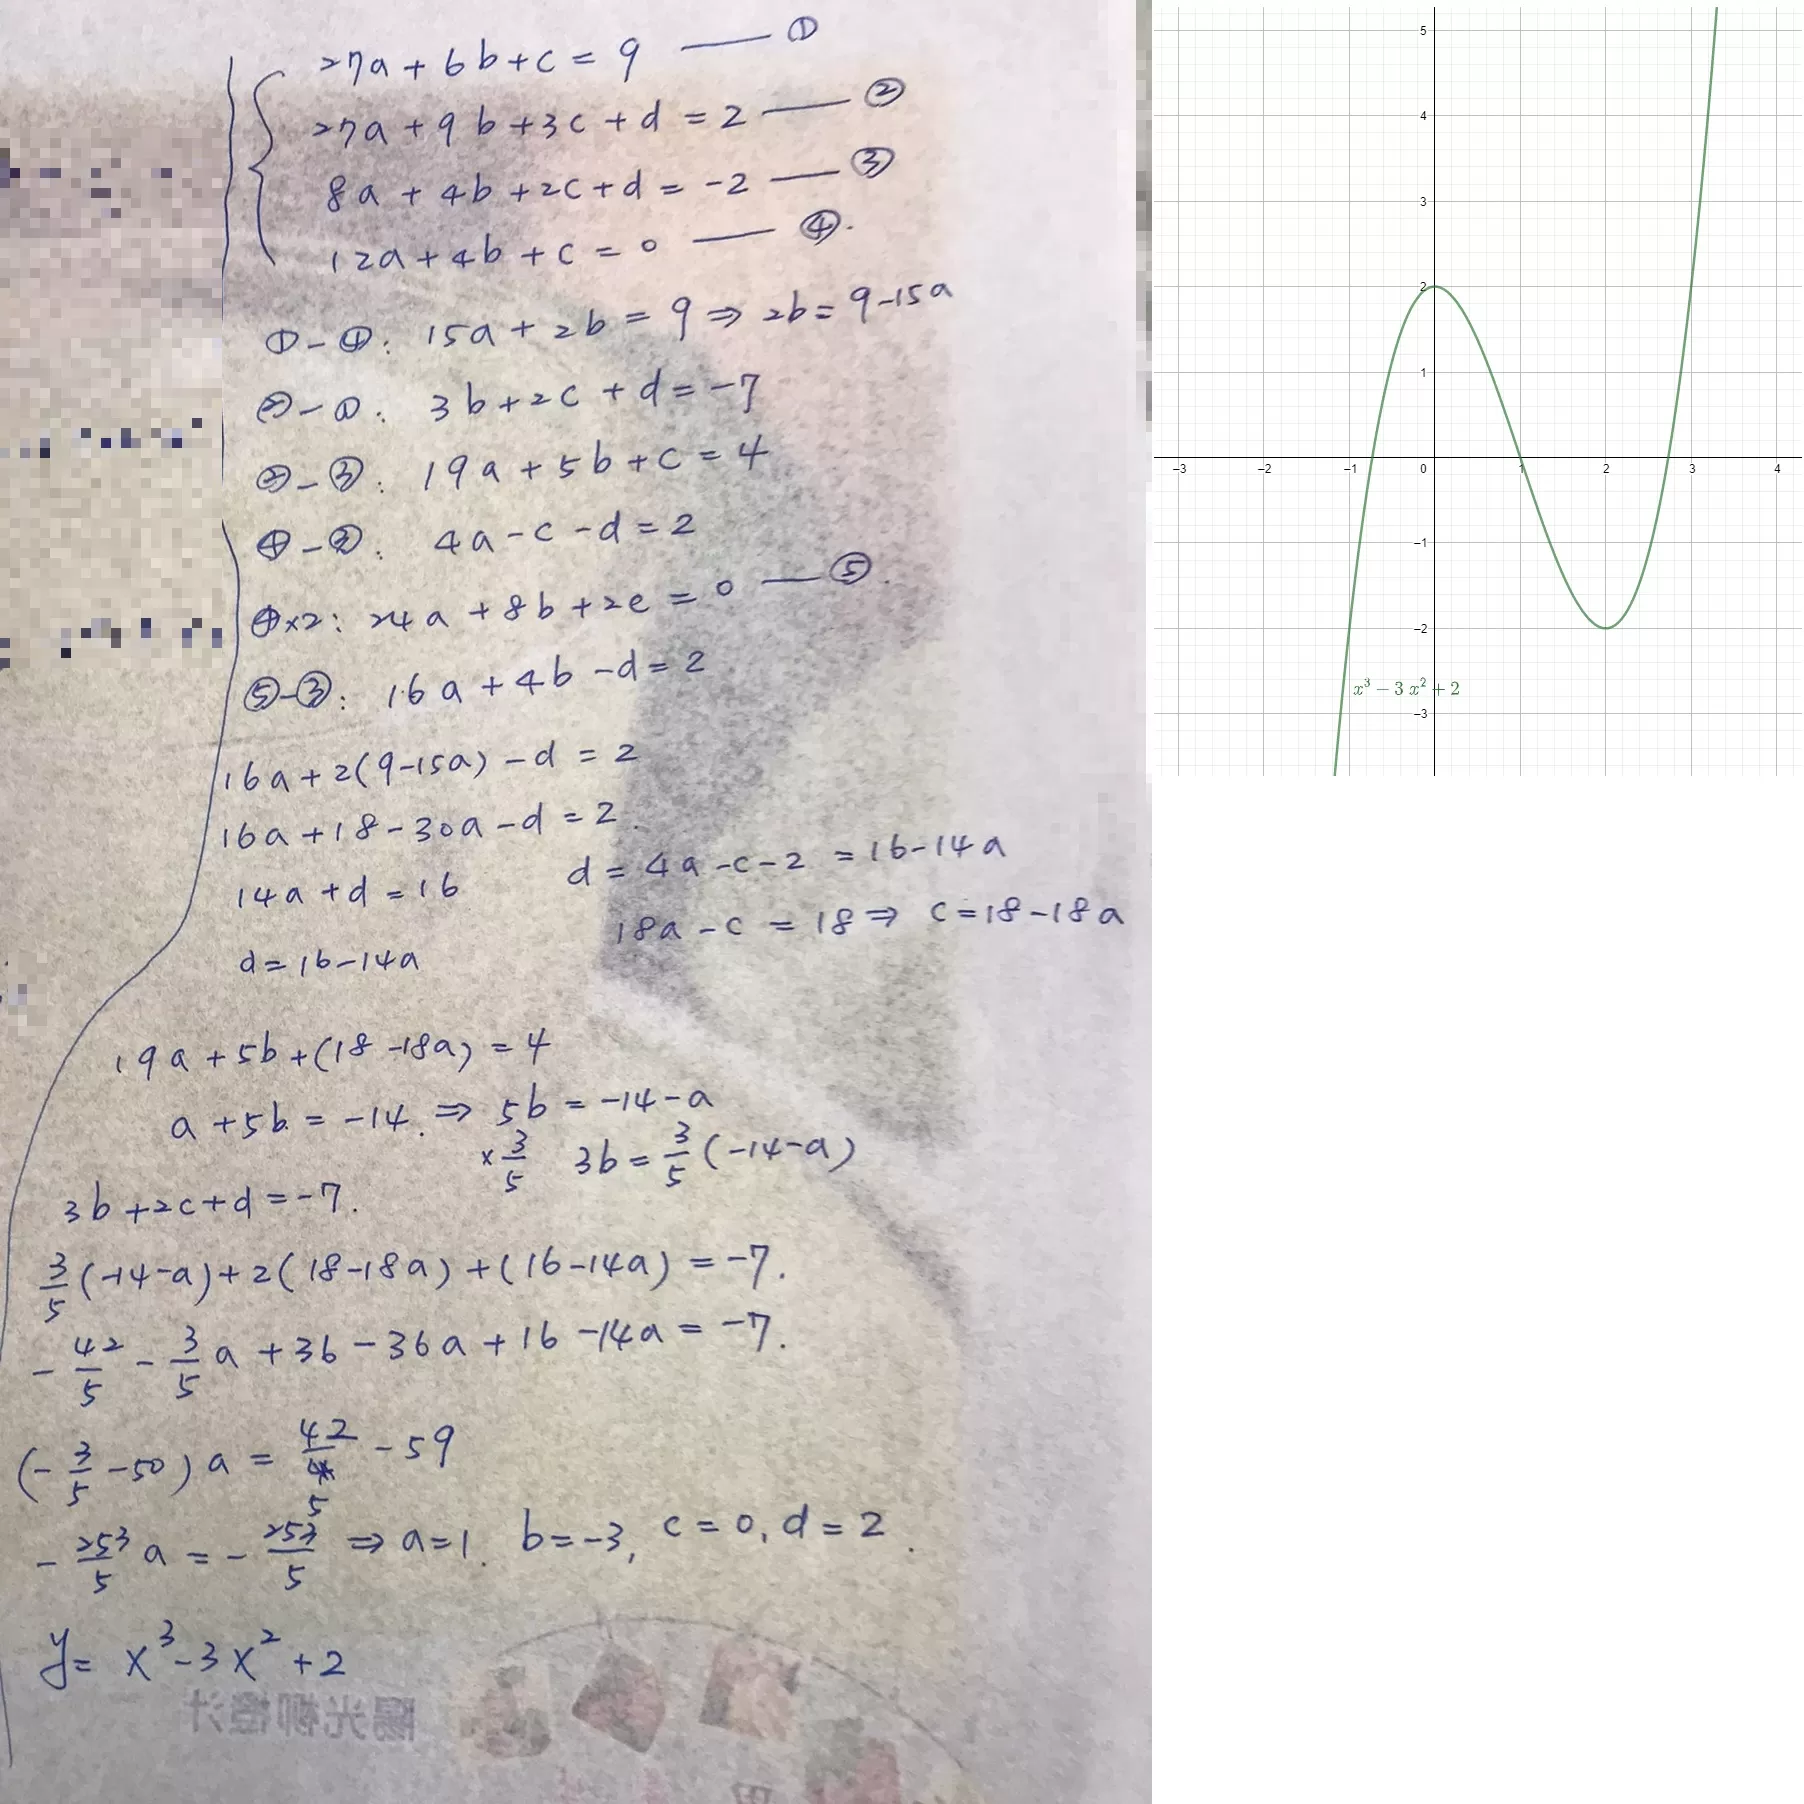 27a + 6b + c = 9 —— ①
27a + 9b + 3c + d = 2 —— ②
8a + 4b + 2c + d = -2 —— ③
12a + 4b + c = 0 —— ④.
① - ④: 15a + 2b = 9 ⇒ 2b = 9 - 15a
② - ①: 3b + 2c + d = -7
② - ③: 19a + 5b + c = 4
④ - ③: 4a - c - d = 2
④×2: 24a + 8b + 2c = 0 —— ⑤.
⑤ - ③: 16a + 4b - d = 2
16a + 2(9-15a) - d = 2
16a + 18 - 30a - d = 2.
14a + d = 16
d = 16 - 14a
d = 4a - c - 2 = 16 - 14a
18a - c = 18 ⇒ c = 18 - 18a
19a + 5b + (18 - 18a) = 4
a + 5b = -14. ⇒ 5b = -14 - a
× 3/5 3b = 3/5 (-14 - a)
3b + 2c + d = -7.
3/5 (-14 - a) + 2(18 - 18a) + (16 - 14a) = -7.
- 42/5 - 3/5 a + 36 - 36a + 16 - 14a = -7.
(- 3/5 - 50) a = 42/5 - 59
- 253/5 a = - 253/5 ⇒ a = 1. b = -3, c = 0, d = 2.
y = x³ - 3x² + 2
陽光柳橙汁
5
4
3
2
1
-3 -2 -1 0 1 2 3 4
-1
-2
x³ − 3 x² + 2
-3